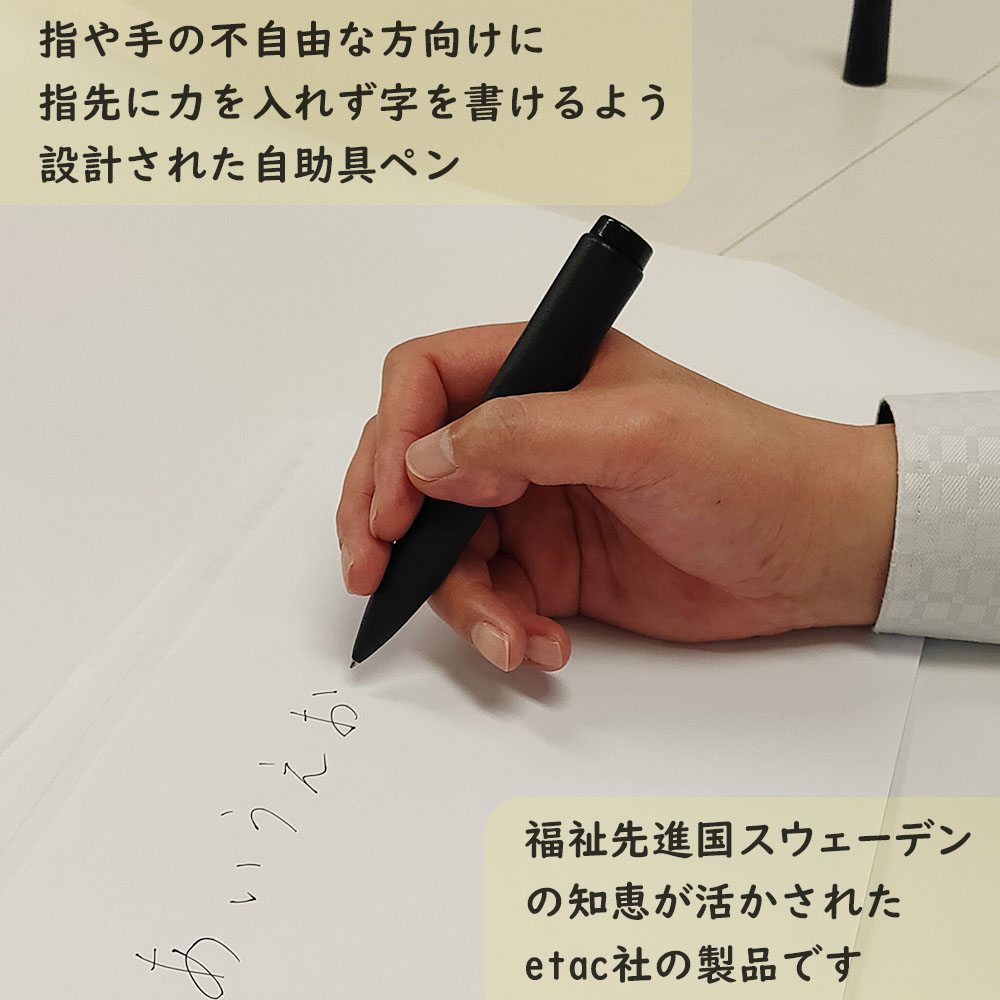 指や手の不自由な方向けに
指先に力を入れず字を書けるよう
設計された自助具ペン
あいうえお
福祉先進国スウェーデン
の知恵が活かされた
etac社の製品です